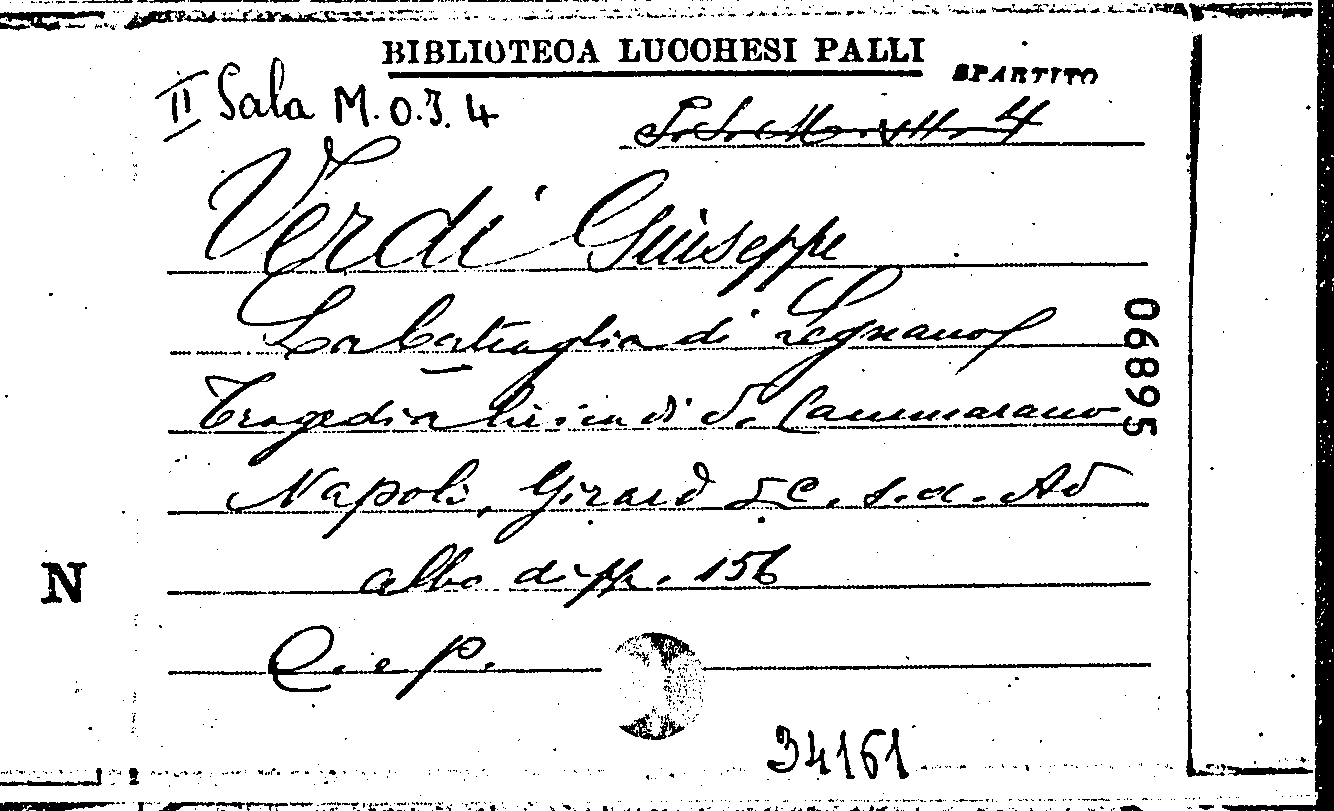 BIBLIOTECA LUCCHESI PALLI
SPARTITO
II Sala M.O.J. 4
Verdi Giuseppe
La battaglia di Legnano
Tragedia lirica di S. Cammarano
Napoli, Girard & C. s.d. Ad
albo di pp. 156
C. e P.
N
06895
34161